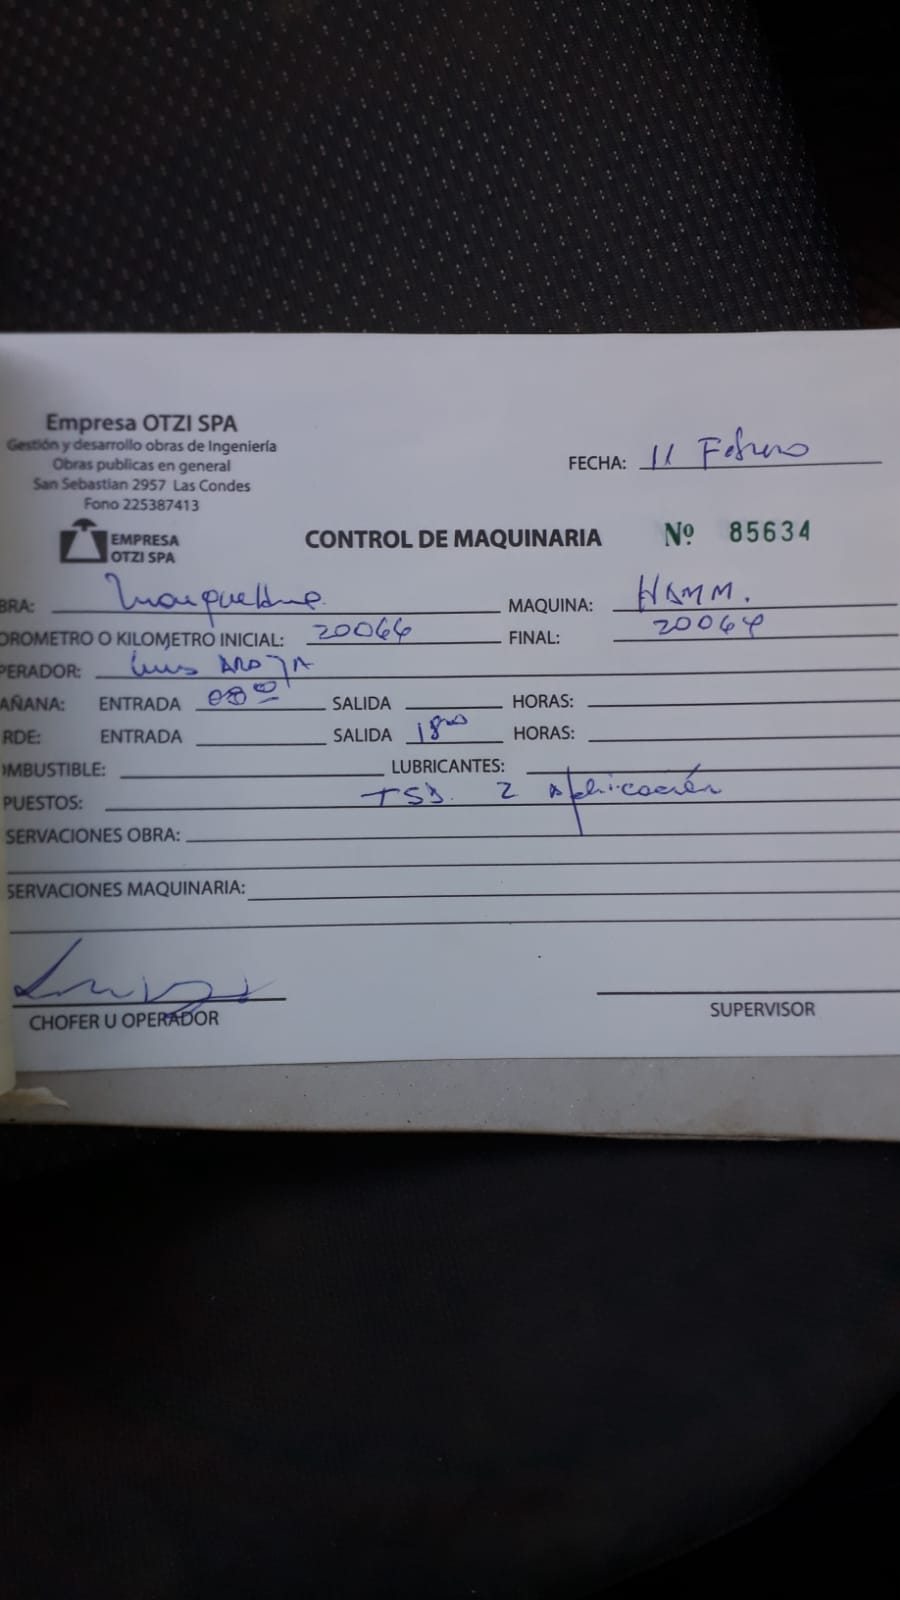 Empresa OTZI SPA
Gestión y desarrollo obras de Ingeniería
Obras publicas en general
San Sebastian 2957 Las Condes
Fono 225387413
FECHA: 11 Febrero
EMPRESA
OTZI SPA
CONTROL DE MAQUINARIA Nº 85634
BRA: MAQUINA: HAMM.
OROMETRO O KILOMETRO INICIAL: 20064 FINAL: 20064
PERADOR: Luis
AÑANA: ENTRADA 08 00 SALIDA HORAS:
RDE: ENTRADA SALIDA 18 00 HORAS:
OMBUSTIBLE: LUBRICANTES:
PUESTOS: TSD. 2 Aplicación
SERVACIONES OBRA:
SERVACIONES MAQUINARIA:
CHOFER U OPERADOR
SUPERVISOR